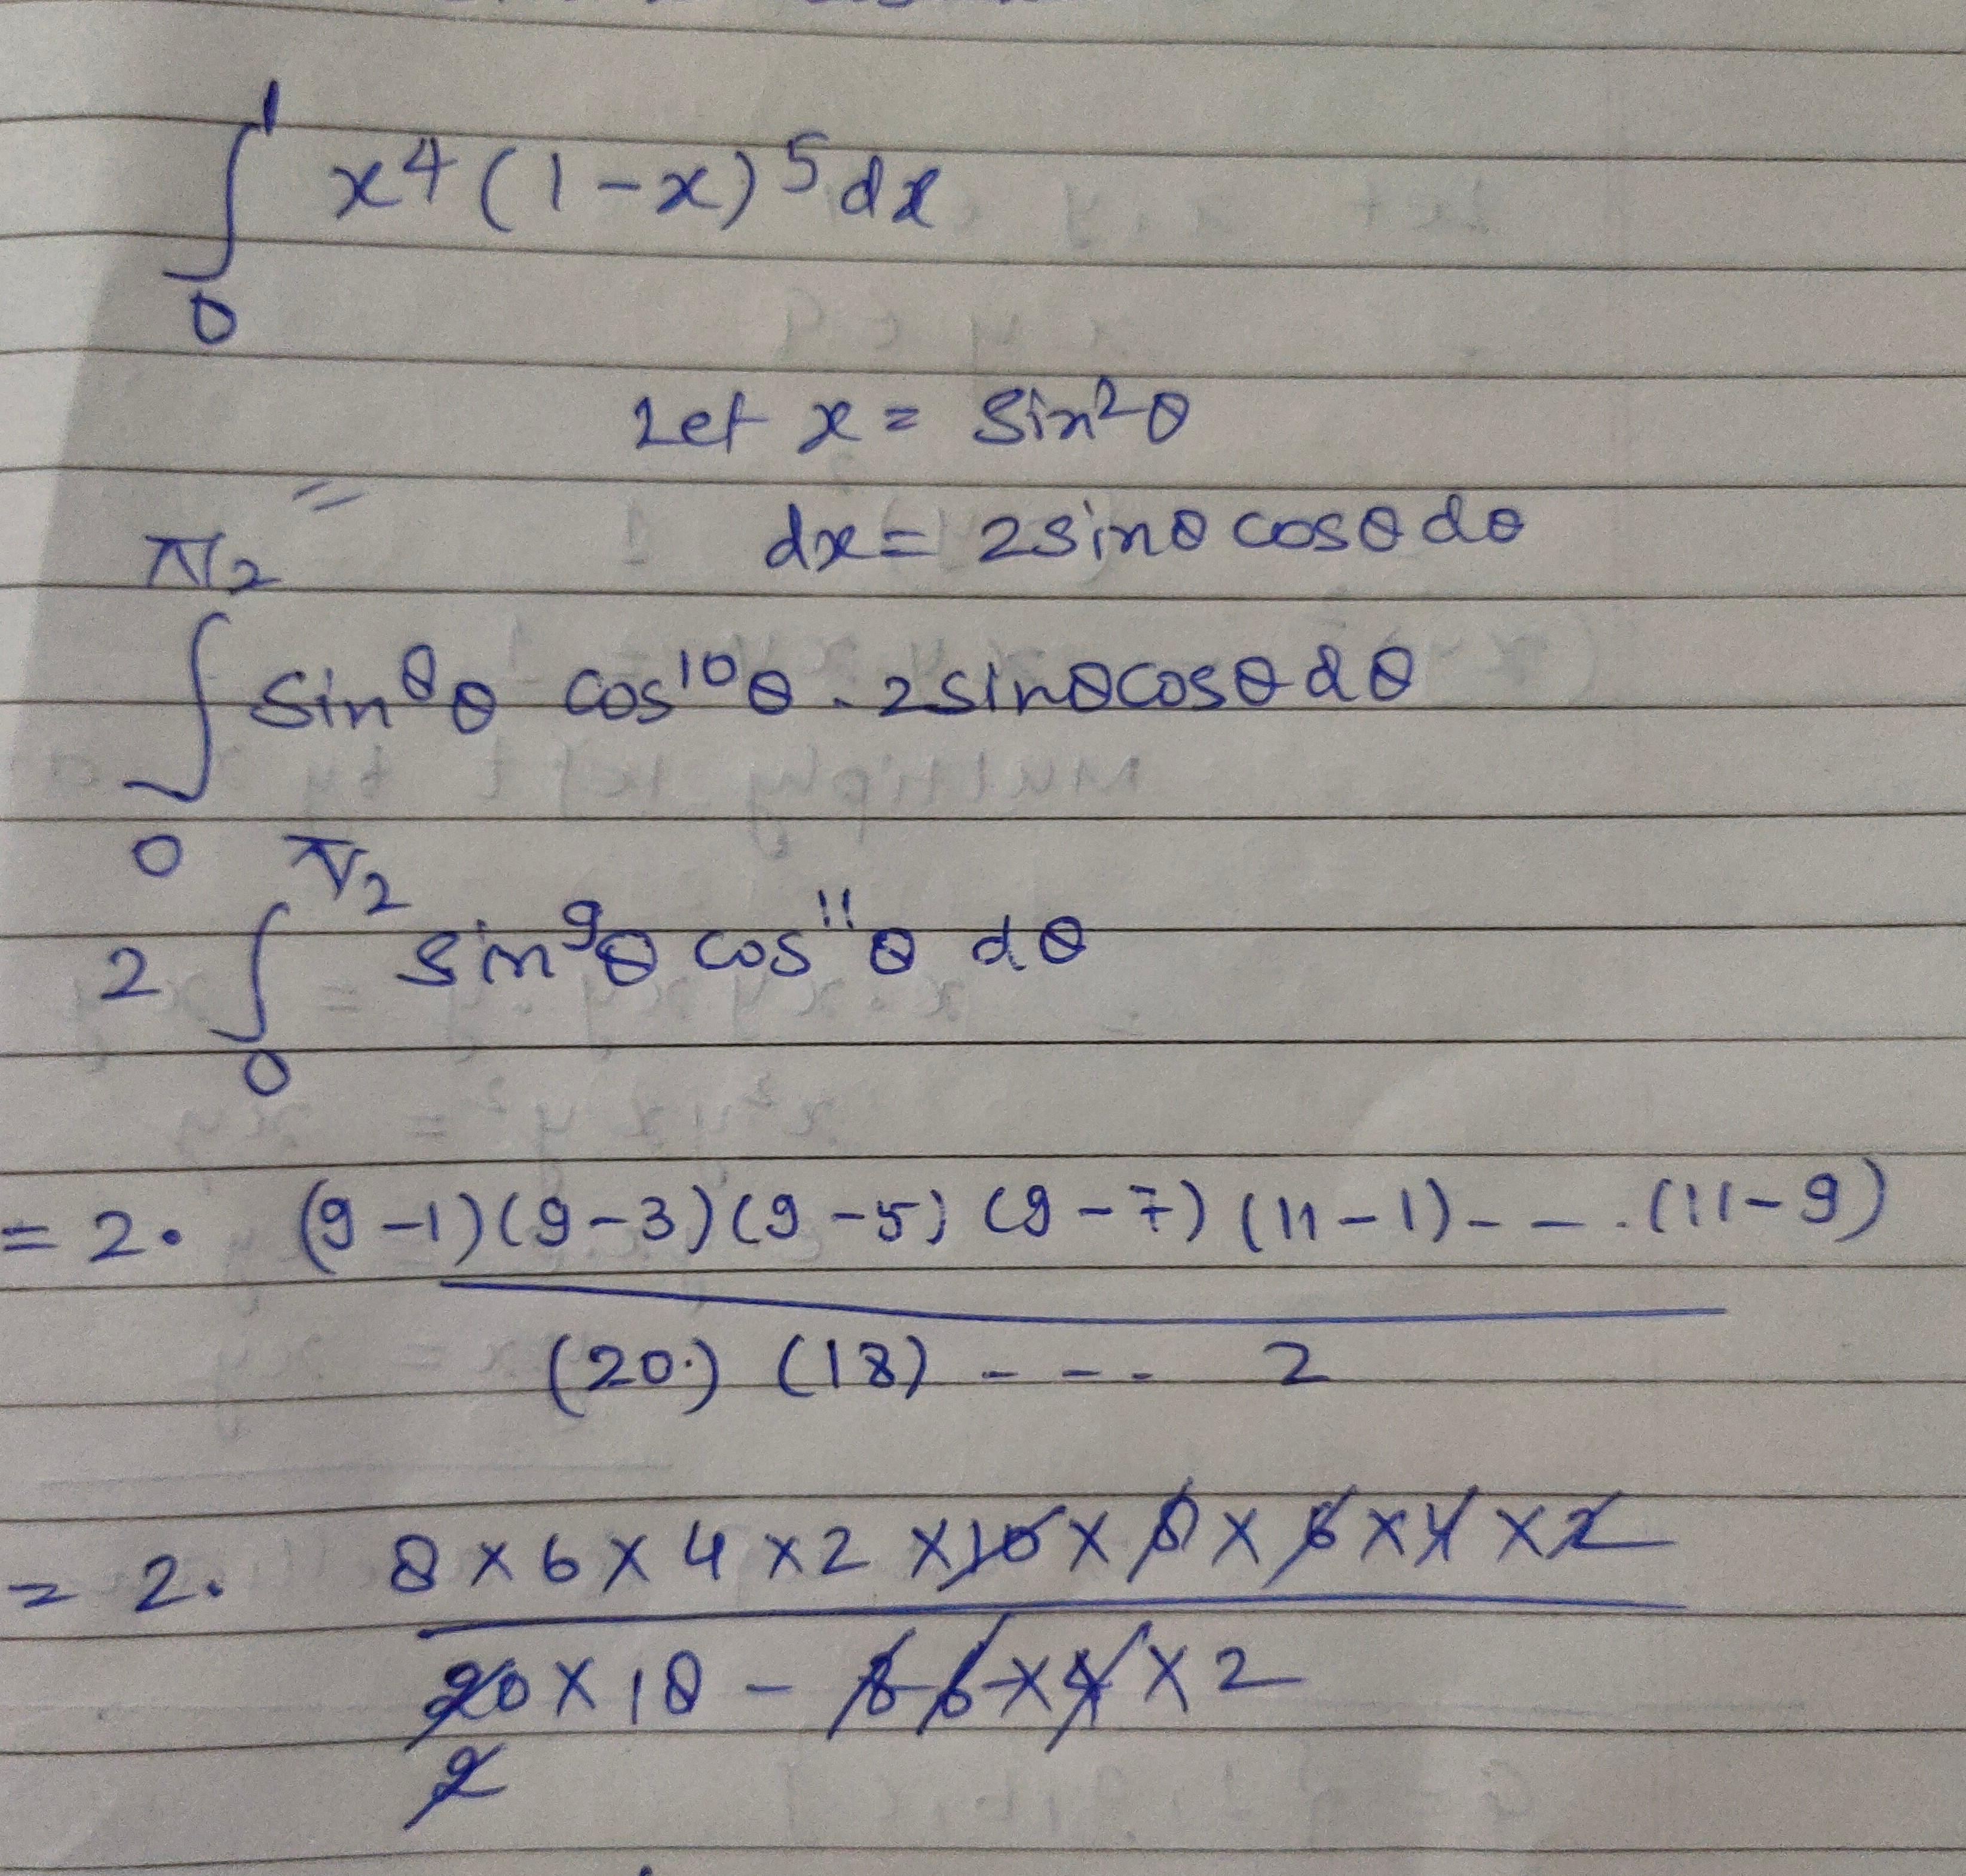 ∫₀¹ x⁴ (1-x)⁵ dx
Let x = sin²θ
= dx = 2sinθ cosθ dθ
∫₀^(π/2) sin⁸θ cos¹⁰θ . 2sinθcosθdθ
2 ∫₀^(π/2) sin⁹θ cos¹¹θ dθ
= 2. (9-1)(9-3)(9-5)(9-7)(11-1)- - -.(11-9)
(20.) (18) - - - 2
= 2. 8×6×4×2×10×8×6×4×2
20×18 - 8 6×4×2
2